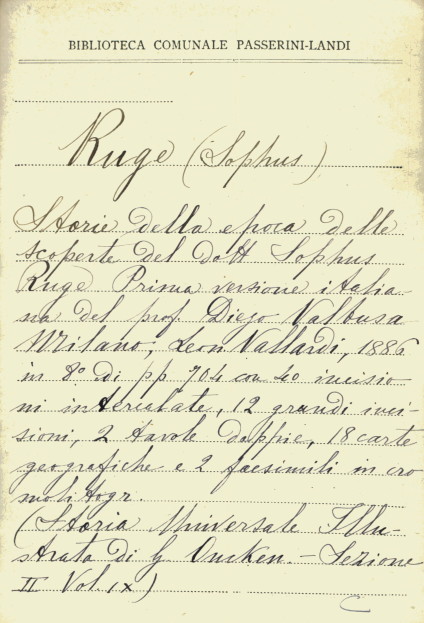 BIBLIOTECA COMUNALE PASSERINI-LANDI
Ruge (Sophus)
Storie della epoca delle
scoperte del dott Sophus
Ruge Prima versione italia-
na del prof. Diego Valbusa
Milano, Leon Vallardi, 1886
in 8° di pp 704 con 40 incisio
ni intercalate, 12 grandi inci-
sioni, 2 tavole doppie, 18 carte
geografiche e 2 facsimili in cro
molitogr.
(Storia Universale Illu-
strata di G Oncken. - Sezione
II Vol. IX)